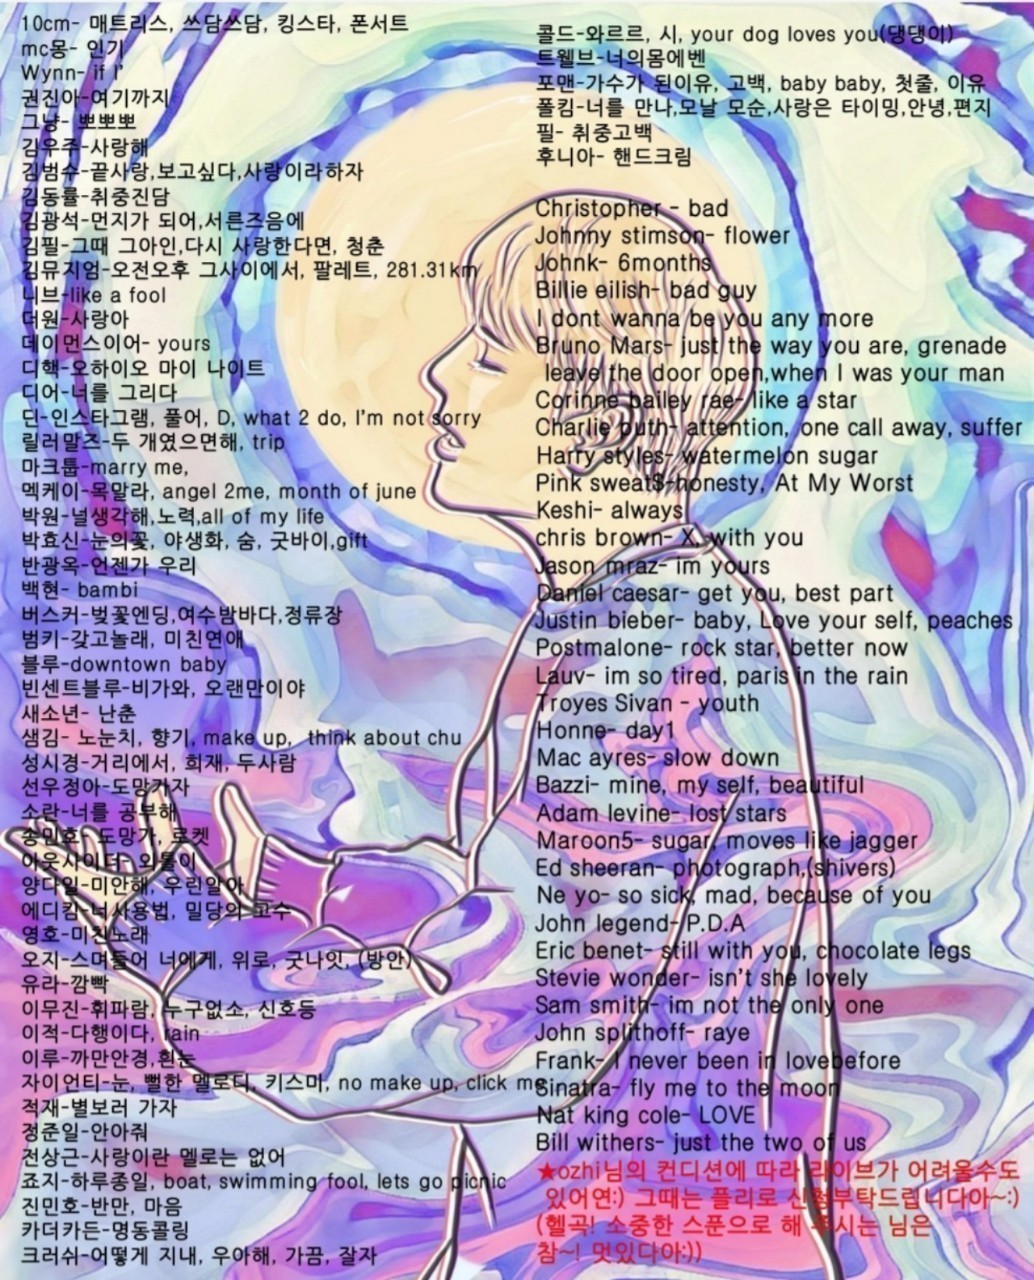 10cm- 매트리스, 쓰담쓰담, 킹스타, 폰서트
mc몽- 인기
Wynn- if I'
권진아-여기까지
그냥- 뽀뽀뽀
김우주-사랑해
김범수-끝사랑,보고싶다,사랑이라하자
김동률-취중진담
김광석-먼지가 되어,서른즈음에
김필-그때 그아인,다시 사랑한다면, 청춘
김뮤지엄-오전오후 그사이에서, 팔레트, 281.31km
니브-like a fool
더원-사랑아
데이먼스이어- yours
디핵-오하이오 마이 나이트
디어-너를 그리다
딘-인스타그램, 풀어, D, what 2 do, I'm not sorry
릴러말즈-두 개였으면해, trip
마크툽-marry me,
멕케이-목말라, angel 2me, month of june
박원-널생각해,노력,all of my life
박효신-눈의꽃, 야생화, 숨, 굿바이,gift
반광옥-언젠가 우리
백현- bambi
버스커-벚꽃엔딩,여수밤바다,정류장
범키-갖고놀래, 미친연애
블루-downtown baby
빈센트블루-비가와, 오랜만이야
새소년- 난춘
샘김- 노눈치, 향기, make up, think about chu
성시경-거리에서, 희재, 두사람
선우정아-도망가자
소란-너를 공부해
송민호- 도망가, 로켓
아웃사이더- 외톨이
양다일-미안해, 우린알아
에디킴-너사용법, 밀당의 고수
영호-미친노래
오지-스며들어 너에게, 위로, 굿나잇, (방안)
유라-깜빡
이무진-휘파람, 누구없소, 신호등
이적-다행이다, rain
이루-까만안경,흰눈
자이언티-눈, 뻘한 멜로디, 키스미, no make up, click me
적재-별보러 가자
정준일-안아줘
전상근-사랑이란 멜로는 없어
죠지-하루종일, boat, swimming fool, lets go picnic
진민호-반만, 마음
카더카든-명동콜링
크러쉬-어떻게 지내, 우아해, 가끔, 잘자
콜드-와르르, 시, your dog loves you(댕댕이)
트웰브-너의몸에벤
포맨-가수가 된이유, 고백, baby baby, 첫줄, 이유
폴킴-너를 만나,모날 모순,사랑은 타이밍,안녕,편지
필- 취중고백
후니아- 핸드크림
Christopher - bad
Johnny stimson- flower
Johnk- 6months
Billie eilish- bad guy
I dont wanna be you any more
Bruno Mars- just the way you are, grenade
leave the door open,when I was your man
Corinne bailey rae- like a star
Charlie puth- attention, one call away, suffer
Harry styles- watermelon sugar
Pink sweat$-honesty, At My Worst
Keshi- always
chris brown- X, with you
Jason mraz- im yours
Daniel caesar- get you, best part
Justin bieber- baby, Love your self, peaches
Postmalone- rock star, better now
Lauv- im so tired, paris in the rain
Troyes Sivan - youth
Honne- day1
Mac ayres- slow down
Bazzi- mine, my self, beautiful
Adam levine- lost stars
Maroon5- sugar, moves like jagger
Ed sheeran- photograph,(shivers)
Ne yo- so sick, mad, because of you
John legend- P.D.A
Eric benet- still with you, chocolate legs
Stevie wonder- isn't she lovely
Sam smith- im not the only one
John splithoff- raye
Frank- I never been in lovebefore
Sinatra- fly me to the moon
Nat king cole- LOVE
Bill withers- just the two of us
★ozhi님의 컨디션에 따라 라이브가 어려울수도
있어연:) 그때는 플리로 신청부탁드립니다아~:)
(헬곡! 소중한 스푼으로 해 주시는 님은
참~! 멋있다아:))